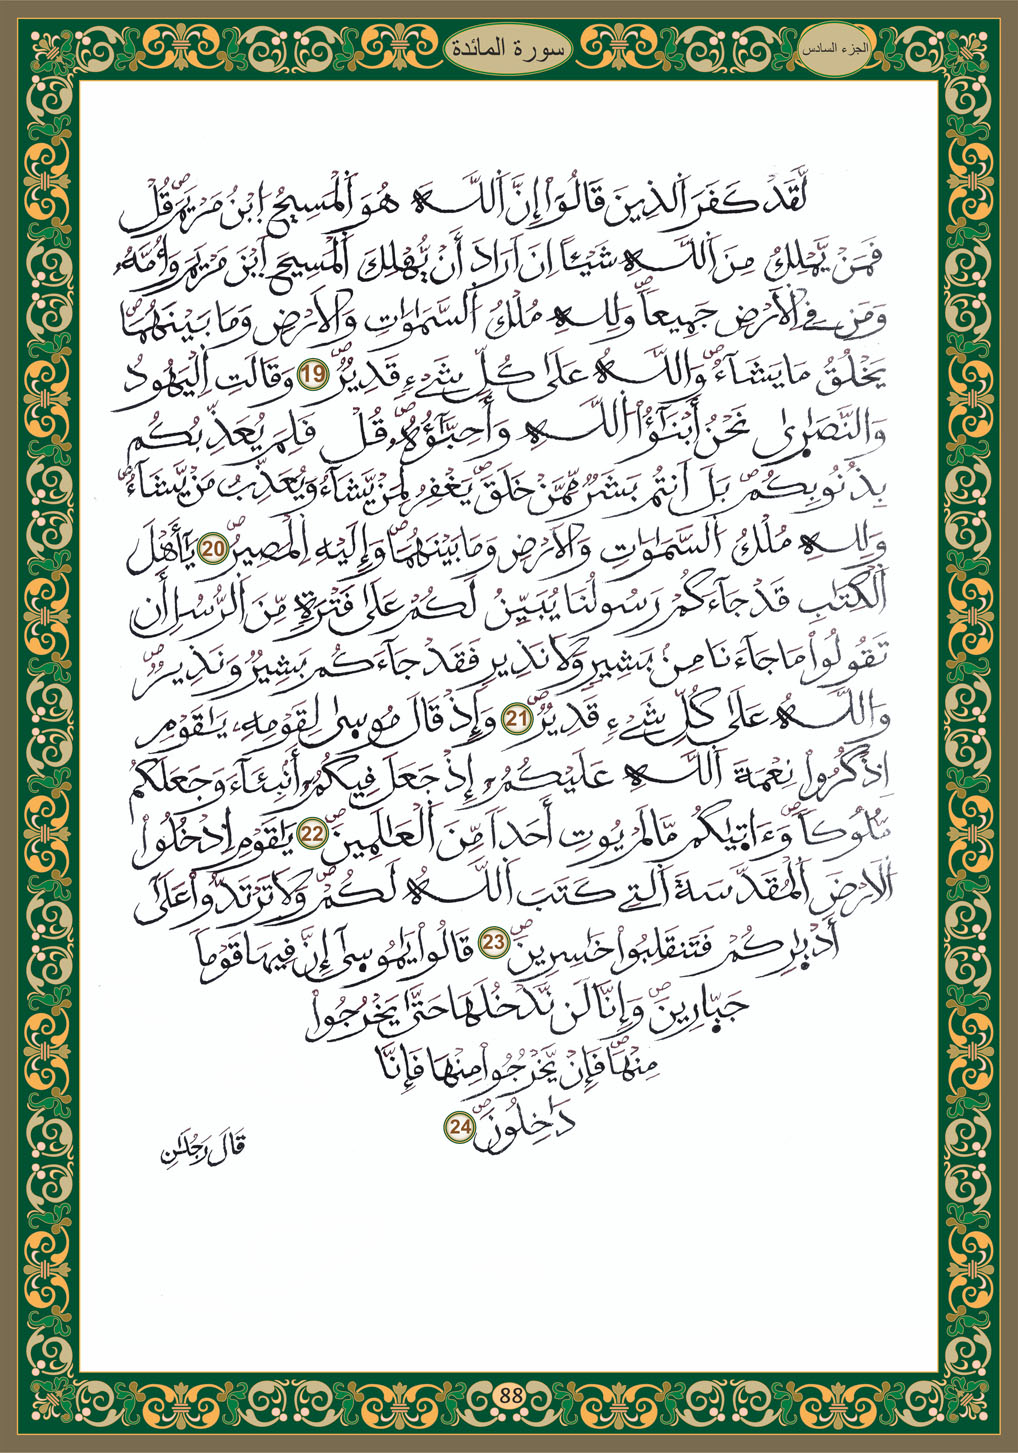 الجزء السادس
سورة المائدة
لَّقَدْ كَفَرَ اَلذِينَ قَالُوٓاْ إِنَّ اَللَّهَ هُوَ اَلْمَسِيحُ اِبْنُ مَرْيَمَ قُلْ
فَمَنْ يَّمْلِكُ مِنَ اَللَّهِ شَيْـًٔا اِنَ اَرَادَ أَنْ يُّهْلِكَ اَلْمَسِيحَ اَبْنَ مَرْيَمَ وَأُمَّهُۥ
وَمَن فِے اِلْأَرْضِ جَمِيعاً وَلِلهِ مُلْكُ اُلسَّمَٰوَٰتِ وَالْأَرْضِ وَمَا بَيْنَهُمَا
يَخْلُقُ مَا يَشَآءُ وَاللَّهُ عَلَىٰ كُلِّ شَےْءٍ قَدِيرٌ 19 وَقَالَتِ اِلْيَهُودُ
وَالنَّصَٰرَىٰ نَحْنُ أَبْنَٰٓؤُاْ اُللَّهِ وَأَحِبَّٰٓؤُهُۥ قُلْ فَلِمَ يُعَذِّبُكُم
بِذُنُوبِكُم بَلَ اَنتُم بَشَرٌ مِّمَّنْ خَلَقَ يَغْفِرُ لِمَنْ يَّشَآءُ وَيُعَذِّبُ مَنْ يَّشَآءُ
وَلِلهِ مُلْكُ اُلسَّمَٰوَٰتِ وَالْأَرْضِ وَمَا بَيْنَهُمَا وَإِلَيْهِ اِلْمَصِيرُ 20 يَٰٓأَهْلَ
اَلْكِتَٰبِ قَدْ جَآءَكُمْ رَسُولُنَا يُبَيِّنُ لَكُمْ عَلَىٰ فَتْرَةٍ مِّنَ اَلرُّسُلِ أَن
تَقُولُواْ مَا جَآءَنَا مِنۢ بَشِيرٍ وَلَا نَذِيرٍ فَقَدْ جَآءَكُم بَشِيرٌ وَنَذِيرٌ
وَاللَّهُ عَلَىٰ كُلِّ شَےْءٍ قَدِيرٌ 21 وَإِذْ قَالَ مُوسَىٰ لِقَوْمِهِۦ يَٰقَوْمِ
اِذْكُرُواْ نِعْمَةَ اَللَّهِ عَلَيْكُمُۥٓ إِذْ جَعَلَ فِيكُمُۥٓ أَنۢبِئَآءَ وَجَعَلَكُم
مُّلُوكاً وَءَاتَىٰكُم مَّا لَمْ يُوتِ أَحَداً مِّنَ اَلْعَٰلَمِينَ 22 يَٰقَوْمِ اِدْخُلُواْ
اُلْأَرْضَ اَلْمُقَدَّسَةَ اَلتِے كَتَبَ اَللَّهُ لَكُمْ وَلَا تَرْتَدُّواْ عَلَىٰٓ
أَدْبَٰرِكُمْ فَتَنقَلِبُواْ خَٰسِرِينَ 23 قَالُواْ يَٰمُوسَىٰٓ إِنَّ فِيهَا قَوْماً
جَبّٰارِينَ وَإِنَّا لَن نَّدْخُلَهَا حَتَّىٰ يَخْرُجُواْ
مِنْهَا فَإِنْ يَّخْرُجُواْ مِنْهَا فَإِنَّا
دَٰخِلُونَ 24
قَالَ رَجُلَٰنِ
88